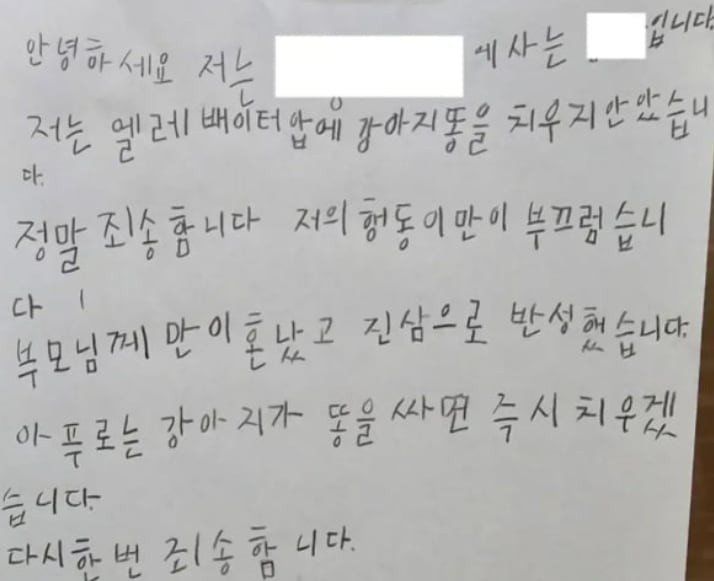 안녕하세요 저는 에사는 입니다
저는 엘레배이터앞에 강아지똥을 치우지안았습니
다.
정말 죄송함니다 저의 헹동이만이 부끄럼습니
다
부모님께 만이혼났고 진삼으로 반성했습니다.
아푸로는 강아지가 똥을 싸면 즉시 치우겠
습니다.
다시한번 죄송함니다.